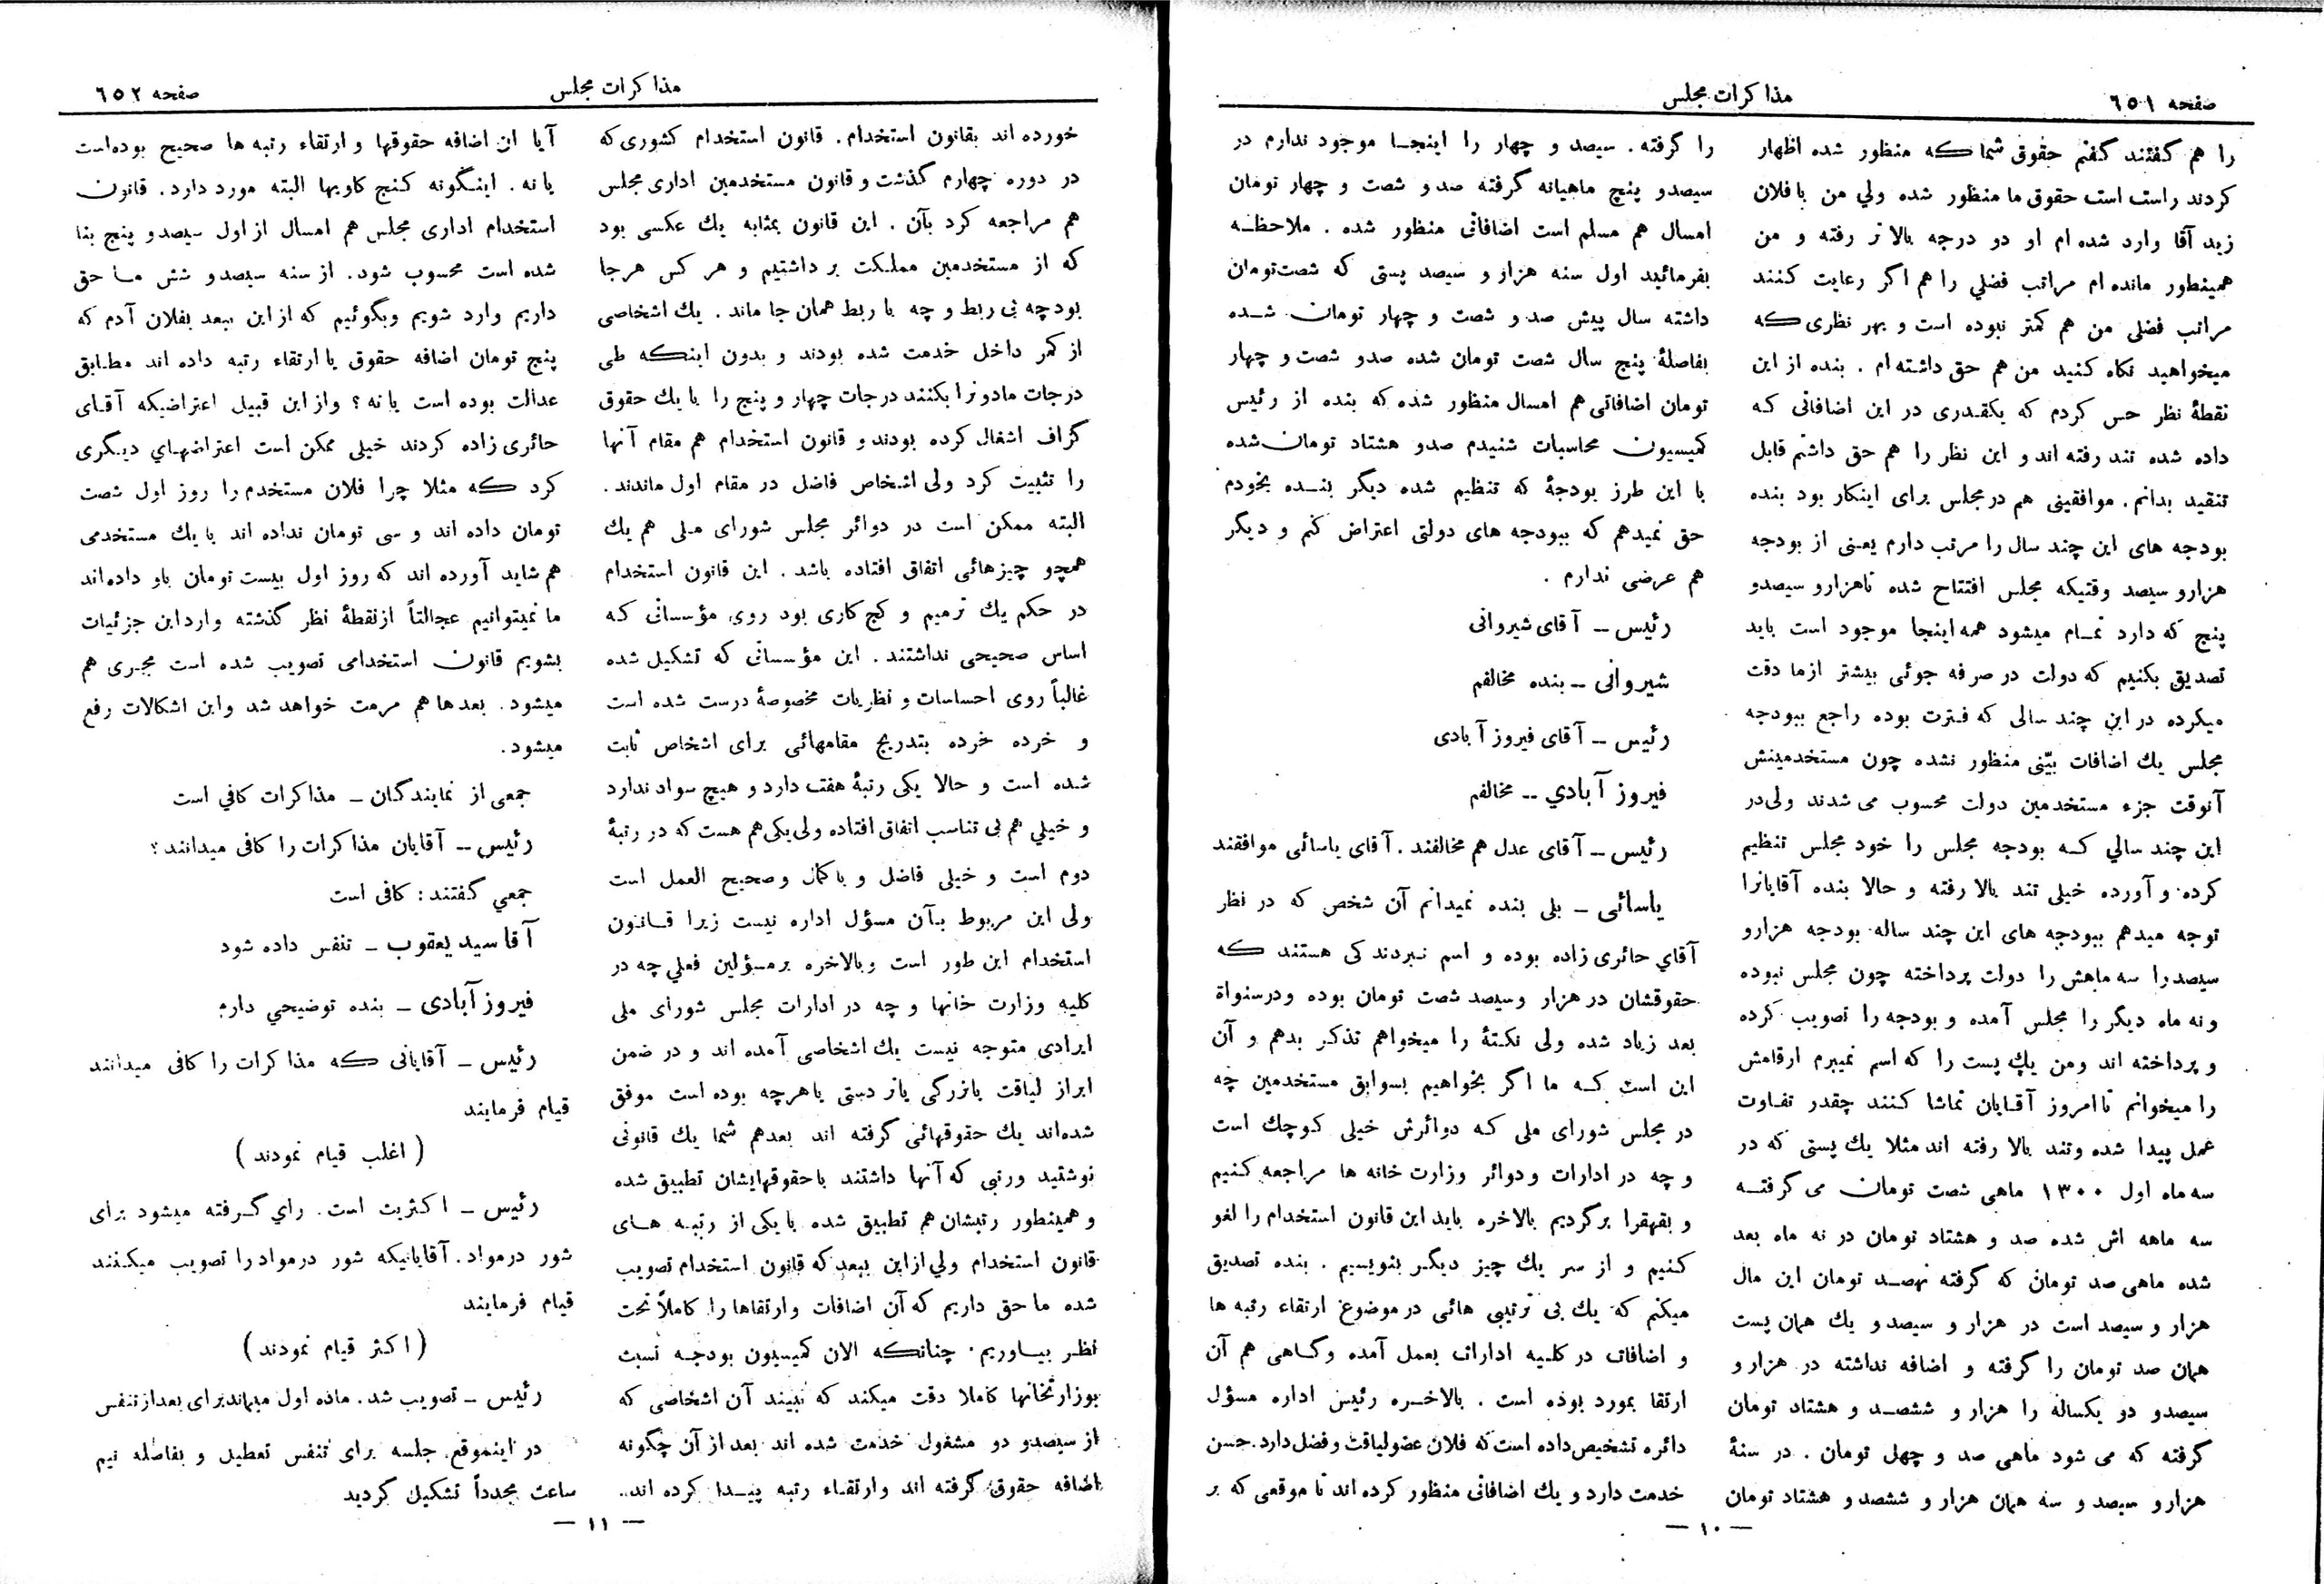 صفحه ٦٥١
مذاكرات مجلس
را هم گفتند گفتم حقوق شما كه منظور شده اظهار
كردند راست است حقوق ما منظور شده ولي من با فلان
زيد آقا وارد شده ام او دو درجه بالا تر رفته و من
همينطور مانده ام مراتب فضلي را هم اگر رعايت كنند
مراتب فضلی من هم كمتر نبوده است و بهر نظری كه
ميخواهيد نگاه كنيد من هم حق داشته ام . بنده از اين
نقطهٔ نظر حس كردم كه يكقدری در اين اضافاتی كه
داده شده تند رفته اند و اين نظر را هم حق داشتم قابل
تنقيد بدانم . موافقينی هم در مجلس برای اينكار بود بنده
بودجه های اين چند سال را مرتب دارم يعنی از بودجه
هزار و سيصد وقتيكه مجلس افتتاح شده تا هزار و سيصدو
پنج كه دارد تمام ميشود همه اينجا موجود است بايد
تصديق بكنيم كه دولت در صرفه جوئی بيشتر از ما دقت
ميكرده در اين چند سالی كه فترت بوده راجع ببودجه
مجلس يك اضافات بيّنی منظور نشده چون مستخدمينش
آنوقت جزء مستخدمين دولت محسوب می شدند ولی در
اين چند سالي كه بودجه مجلس را خود مجلس تنظيم
كرده و آورده خيلی تند بالا رفته و حالا بنده آقايانرا
توجه ميدهم ببودجه های اين چند ساله بودجه هزارو
سيصد را سه ماهش را دولت پرداخته چون مجلس نبوده
و نه ماه ديگر را مجلس آمده و بودجه را تصويب كرده
و پرداخته اند ومن يك پست را كه اسم نميبرم ارقامش
را ميخوانم تا امروز آقايان تماشا كنند چقدر تفاوت
عمل پيدا شده وتند بالا رفته اند مثلا يك پستی كه در
سه ماه اول ١٣٠٠ ماهی شصت تومان می گرفته
سه ماهه اش شده صد و هشتاد تومان در نه ماه بعد
شده ماهی صد تومان كه گرفته نهصد تومان اين مال
هزار و سيصد است در هزار و سيصد و يك همان پست
همان صد تومان را گرفته و اضافه نداشته در هزار و
سيصدو دو يكساله را هزار و ششصد و هشتاد تومان
گرفته كه می شود ماهی صد و چهل تومان . در سنهٔ
هزار و سيصد و سه همان هزار و ششصد و هشتاد تومان
را گرفته . سيصد و چهار را اينجا موجود ندارم در
سيصدو پنج ماهيانه گرفته صد و شصت و چهار تومان
امسال هم مسلم است اضافاتی منظور شده . ملاحظه
بفرمائيد اول سنه هزار و سيصد پستی كه شصت تومان
داشته سال پيش صد و شصت و چهار تومان شده
بفاصلهٔ پنج سال شصت تومان شده صدو شصت و چهار
تومان اضافاتی هم امسال منظور شده كه بنده از رئيس
كميسيون محاسبات شنيدم صدو هشتاد تومان شده
با اين طرز بودجهٔ كه تنظيم شده ديگر بنده بخودم
حق نميدهم كه ببودجه های دولتی اعتراض كنم و ديگر
هم عرضی ندارم .
رئيس ــ آقای شيروانی
شيروانی ــ بنده مخالفم
رئيس ــ آقای فيروز آبادی
فيروز آبادي ــ مخالفم
رئيس ــ آقای عدل هم مخالفند . آقای ياسائی موافقند
ياسائی ــ بلی بنده نميدانم آن شخص كه در نظر
آقاي حائری زاده بوده و اسم نبردند كی هستند كه
حقوقشان در هزار وسيصد شصت تومان بوده ودرسنواة
بعد زياد شده ولی نكتهٔ را ميخواهم تذكر بدهم و آن
اين است كه ما اگر بخواهيم بسوابق مستخدمين چه
در مجلس شورای ملی كه دوائرش خيلی كوچك است
و چه در ادارات ودوائر وزارت خانه ها مراجعه كنيم
و بقهقرا برگرديم بالاخره بايد اين قانون استخدام را لغو
كنيم و از سر يك چيز ديگر بنويسيم . بنده تصديق
ميكنم كه يك بی ترتيبی هائی در موضوع ارتقاء رتبه ها
و اضافات در كليه ادارات بعمل آمده و گاهی هم آن
ارتقا بمورد بوده است . بالاخره رئيس اداره مسؤل
دائره تشخيص داده است كه فلان عضو لياقت و فضل دارد . حسن
خدمت دارد و يك اضافاتی منظور كرده اند تا موقعی كه بر
— ١٠ —
مذاكرات مجلس
صفحه ٦٥٢
خورده اند بقانون استخدام . قانون استخدام كشوری كه
در دوره چهارم گذشت و قانون مستخدمين اداری مجلس
هم مراجعه كرد بآن . اين قانون بمثابه يك عكسی بود
كه از مستخدمين مملكت بر داشتيم و هر كس هرجا
بود چه بی ربط و چه با ربط همان جا ماند . يك اشخاصی
از كمر داخل خدمت شده بودند و بدون اينكه طی
درجات مادونرا بكنند درجات چهار و پنج را با يك حقوق
گزاف اشغال كرده بودند و قانون استخدام هم مقام آنها
را تثبيت كرد ولی اشخاص فاضل در مقام اول ماندند .
البته ممكن است در دوائر مجلس شورای ملی هم يك
همچو چيزهائی اتفاق افتاده باشد . اين قانون استخدام
در حكم يك ترميم و گچ كاری بود روی مؤسساتی كه
اساس صحيحی نداشتند . اين مؤسساتی كه تشكيل شده
غالباً روی احساسات و نظريات مخصوصهٔ درست شده است
و خرده خرده بتدريج مقامهائی برای اشخاص ثابت
شده است و حالا يكی رتبهٔ هفت دارد و هيچ سواد ندارد
و خيلي هم بی تناسب اتفاق افتاده ولی يكی هم هست كه در رتبهٔ
دوم است و خيلی فاضل و با كمال و صحيح العمل است
ولی اين مربوط بآن مسؤل اداره نيست زيرا قانون
استخدام اين طور است وبالاخره بر مسؤلين فعلي چه در
كليه وزارت خانها و چه در ادارات مجلس شورای ملی
ايرادی متوجه نيست يك اشخاصی آمده اند و در ضمن
ابراز لياقت يا زرنگی يا ز دستی يا هرچه بوده است موفق
شده اند يك حقوقهائی گرفته اند بعد هم شما يك قانونی
نوشتيد ورتبی كه آنها داشتند با حقوقهايشان تطبيق شده
و همينطور رتبشان هم تطبيق شده با يكی از رتبه های
قانون استخدام ولي از اين ببعد كه قانون استخدام تصويب
شده ما حق داريم كه آن اضافات و ارتقاها را كاملاً تحت
نظر بياوريم . چنانكه الان كميسيون بودجه نسبت
بوزارتخانها كاملا دقت ميكند كه ببيند آن اشخاصی كه
از سيصدو دو مشغول خدمت شده اند بعد از آن چگونه
اضافه حقوق گرفته اند وارتقاء رتبه پيدا كرده اند..
آيا ان اضافه حقوقها و ارتقاء رتبه ها صحيح بوده است
يا نه . اينگونه كنج كاويها البته مورد دارد . قانون
استخدام اداری مجلس هم امسال از اول سيصدو پنج بنا
شده است محسوب شود . از سنه سيصدو شش ما حق
داريم وارد شويم وبگوئيم كه از اين ببعد بفلان آدم كه
پنج تومان اضافه حقوق يا ارتقاء رتبه داده اند مطابق
عدالت بوده است يا نه ؟ و از اين قبيل اعتراضيكه آقای
حائری زاده كردند خيلی ممكن است اعتراضهاي ديگری
كرد كه مثلا چرا فلان مستخدم را روز اول شصت
تومان داده اند و سی تومان نداده اند يا يك مستخدمی
هم شايد آورده اند كه روز اول بيست تومان باو داده اند
ما نميتوانيم عجالتاً از نقطهٔ نظر گذشته وارد اين جزئيات
بشويم قانون استخدامی تصويب شده است مجری هم
ميشود . بعدها هم مرمت خواهد شد واين اشكالات رفع
ميشود .
جمعی از نمايندگان ــ مذاكرات كافي است
رئيس ــ آقايان مذاكرات را كافی ميدانند ؟
جمعي گفتند : كافی است
آقا سيد يعقوب ــ تنفس داده شود
فيروز آبادی ــ بنده توضيحي دارم
رئيس ــ آقايانی كه مذاكرات را كافی ميدانند
قيام فرمايند
( اغلب قيام نمودند )
رئيس ــ اكثريت است . راي گرفته ميشود برای
شور در مواد . آقايانيكه شور در مواد را تصويب ميكنند
قيام فرمايند
( اكثر قيام نمودند )
رئيس ــ تصويب شد . ماده اول ميماند برای بعد از تنفس
در اينموقع جلسه برای تنفس تعطيل و بفاصله نيم
ساعت مجدداً تشكيل گرديد
— ١١ —